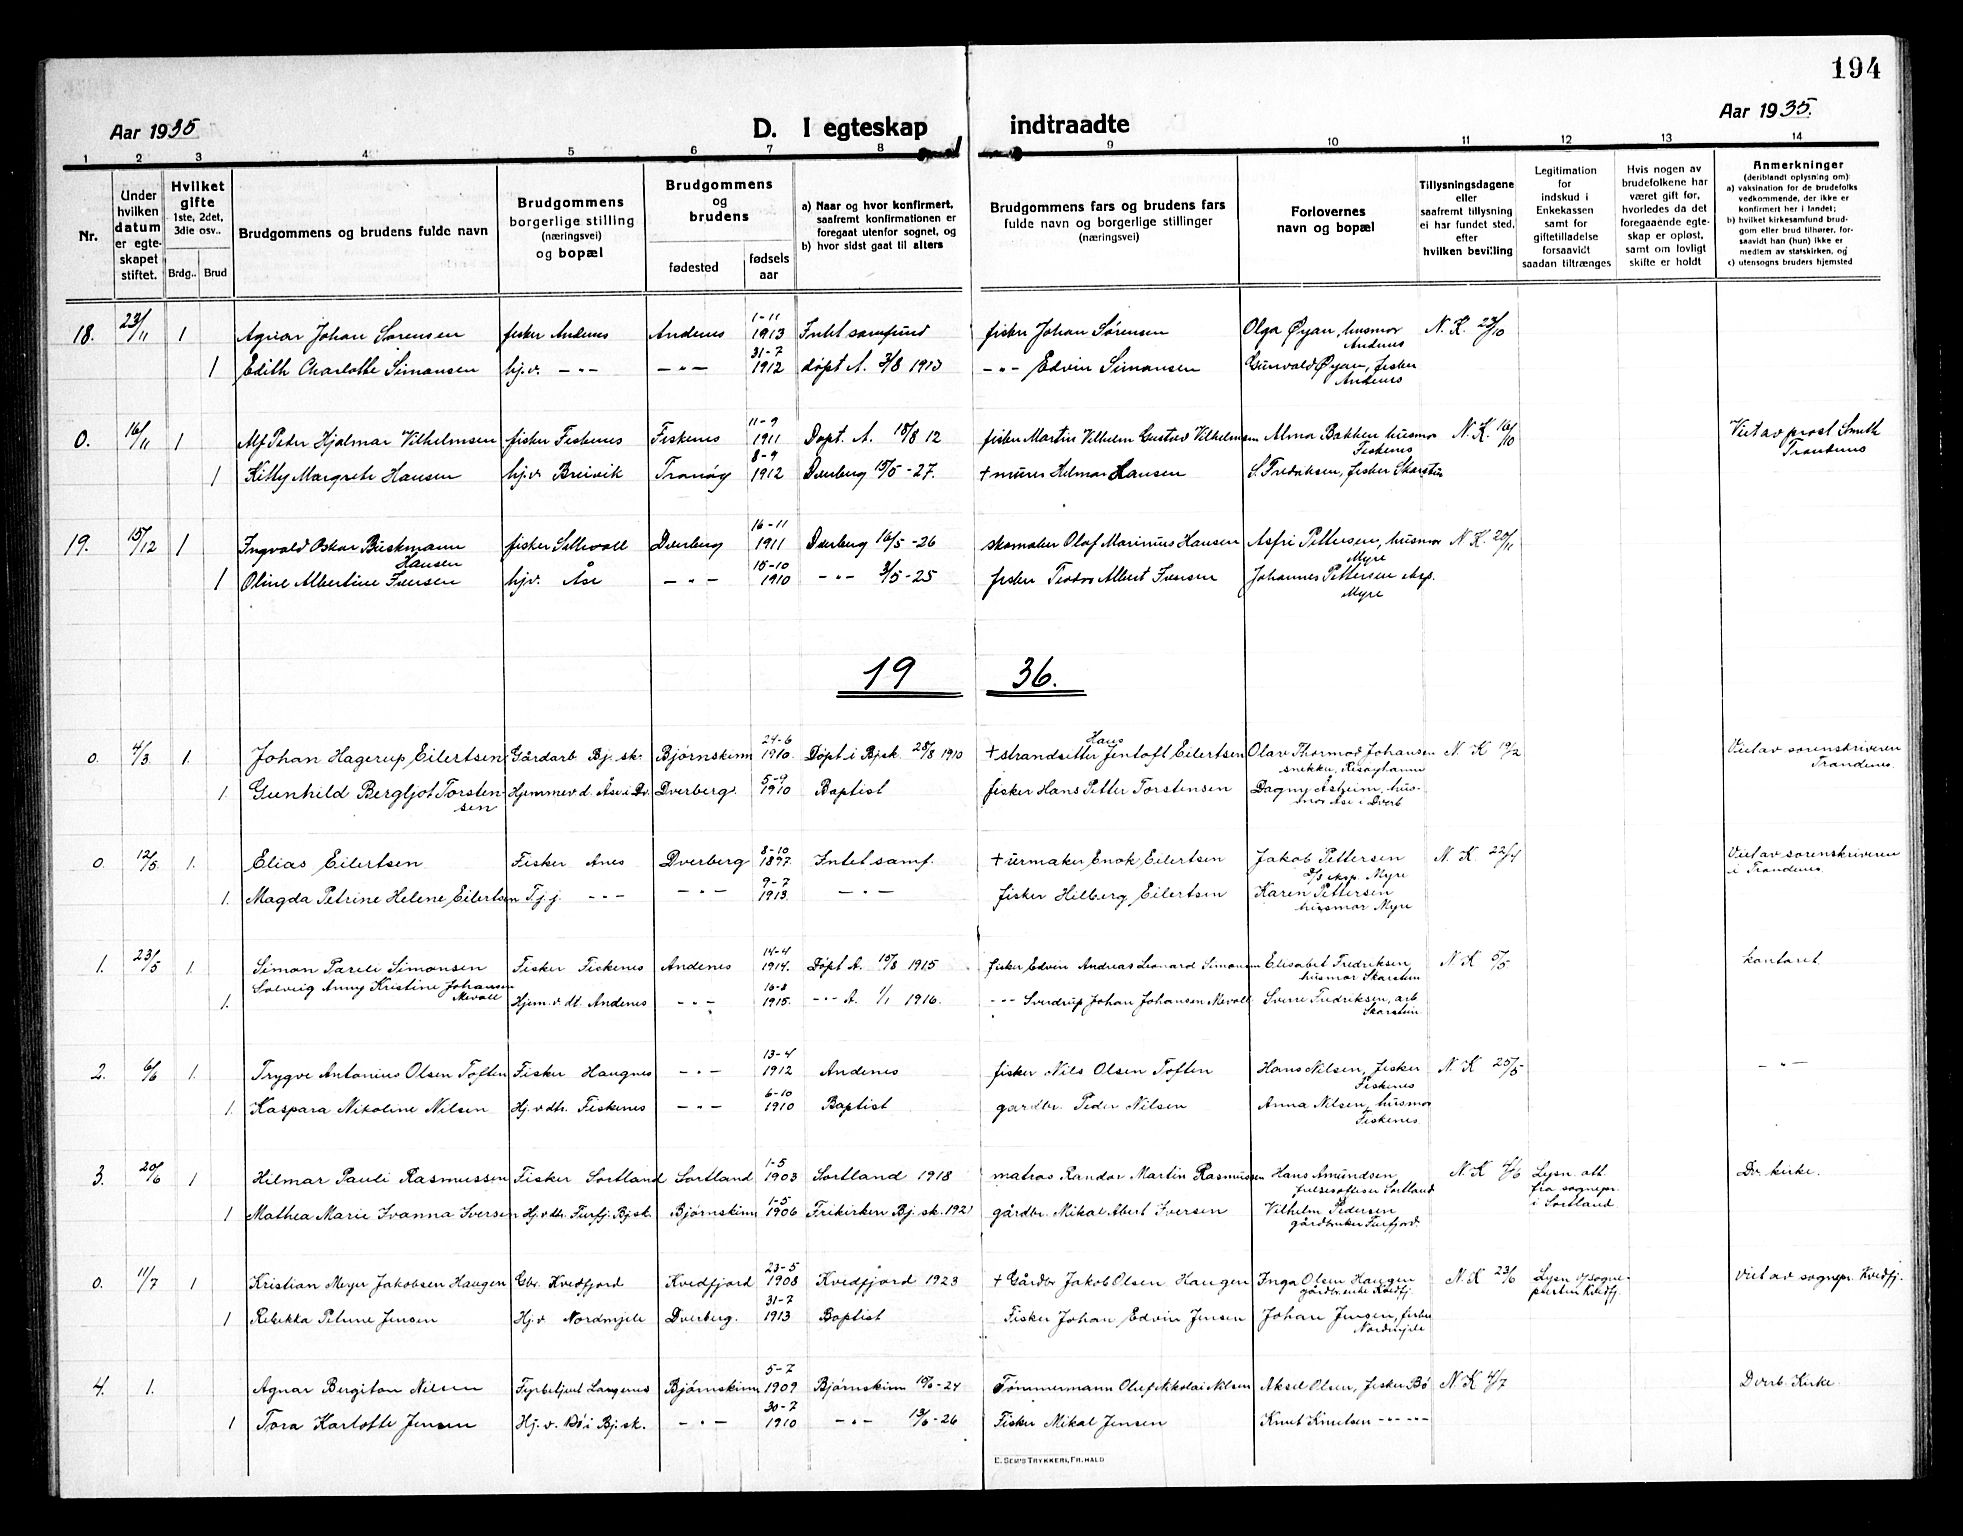 194
Aar 1935 D. I egteskap indtraadte Aar 1935.
1 2 3 4 5 6 7 8 9 10 11 12 13 14
Nr.
Under hvilken datum er egteskapet stiftet.
Hvilket gifte 1ste, 2det, 3die osv..
Brdg.. Brud
Brudgommens og brudens fulde navn
Brudgommens borgerlige stilling (næringsvei) og bopæl
Brudgommens og brudens
fødested
fødsels aar
a) Naar og hvor konfirmert, saafremt konfirmationen er foregaat utenfor sognet, og
b) hvor sidst gaat til alters
Brudgommens fars og brudens fars fulde navn og borgerlige stillinger (næringsvei)
Forlovernes navn og bopæl
Tillysningsdagene eller saafremt tillysning ei har fundet sted, efter hvilken bevilling
Legitimation for indskud i Enkekassen samt for giftetilladelse forsaavidt saadan tiltrænges
Hvis nogen av brudefolkene har været gift før, hvorledes da det foregaaende egteskap er opløst, samt om lovligt skifte er holdt
Anmerkninger (deriblandt oplysning om):
a) vaksination for de brudefolks vedkommende, der ikke er konfirmert her i landet;
b) hvilket kirkesamfund brudgom eller brud tilhører, forsaavidt han (hun) ikke er medlem av statskirken, og
c) utensogns bruders hjemsted
18. 23/11 1 Agnar Johan Sørensen fisker Andenes Andenes 1-11 1913 Intet samfund fisker Johan Sørensen Olga Øyan, husmor Andenes N. K. 23/10
1 Edith Charlotte Simonsen hj.v. -"- -"- 31-7 1912 døpt A. 3/8 1913 -"- Edvin Simonsen Gunvald Øyan, fisker Andenes
0. 16/11 1 Alf Peder Hjalmar Vilhelmsen fisker Fiskenes Fiskenes 11-9 1911 Døpt. A. 18/8 12 fisker Martin Vilhelm Gustav Vilhelmsen Alma Bakken husmor Fiskenes N. K. 16/10 Viet av prost Smith Trondenes
1 Kitty Margrete Hansen hj.v. Breivik Tranøy 8-9 1912 Dverberg 15/5-27. + murer Hilmar Hansen S. Fredriksen, fisker Skarstein
19. 15/12 1 Ingvald Oskar Buskmann Hansen fisker Sellevoll Dverberg 16-11 1911 Dverberg 16/5-26 skomaker Olaf Marinius Hansen Asfri Pettersen, husmor Myre N. K. 20/11
1 Oline Albertine Iversen hj.v. Åse -"- 15-10 1910 -"- 3/5-25 fisker Teodor Albert Iversen Johannes Pettersen Myre
1936.
0. 4/3 1. Johan Hagerup Eilertsen Gårdarb Bj.sk. Bjørnskinn 24-6 1910. Døpt i Bj.sk. 28/8 1910 + strandsitter Hans Jentoft Eilertsen Olav Thormod Johansen snekker, Risøyhamn N. K 19/2 Viet av sorenskriveren Trondenes.
1. Gunhild Bergljot Torstensen Hjemmev.d. Åse i Dv. Dverberg. 5-9 1910 Baptist fisker Hans Petter Torstensen Dagny Åsheim, husmor Åse i Dverb
0. 12/5 1. Elias Eilertsen Fisker Ånes Dverberg 8-10 1897. Intet samf. + urmaker Enok Eilertsen Jakob Pettersen Myre N. K 22/4 Viet av sorenskriveren i Trondenes.
1. Magda Petrine Helene Eilertsen T.j.j. -"- -"- 9-7 1913. -"- fisker Hilberg Eilertsen Karen Pettersen husmor Myre
1. 23/5 1. Simon Pareli Simonsen Fisker Fiskenes Andenes 14-4 1914. Døpt A. 15/8 1915 fisker Edvin Andreas Leonard Simonsen Elisabet Fredriksen husmor Skarstein N. K 5/5 kontoret
1. Solveig Anny Kristine Johansen Mevoll Hjem.v.dt. Andenes -"- 16-8 1915. -"- A. 1/1 1916. -"- Sverdrup Johan Johansen Mevoll Sverre Fredriksen, arb Skarstein
2. 6/6 1. Trygve Antonius Olsen Toften Fisker Haugnes -"- 13-4 1912 Andenes fisker Nils Olsen Toften Hans Nilsen, fisker Fiskenes N. K 25/5 -"-
1. Kaspara Nikoline Nilsen Hj.v.dtr. Fiskenes -"- 6-10 1910 Baptist gardbr. Peder Nilsen Anna Nilsen, husmor Fiskenes
3. 20/6 1 Hilmar Pauli Rasmussen Fisker Sortland Sortland 1-5 1903 Sortland 1918 matros Randor Martin Rasmussen Hans Amundsen frelsesoffiser Sortland N. K Lysn. att. fra sognepr. i Sortland Dv. kirke.
1 Mathea Marie Ivanna Iversen Hj.v.dtr. Furfj. Bj.sk. Bjørnskinn 1-5 1906 Frikirken Bj.sk. 1921 gårdbr. Mikal Abert Iversen Vilhelm Pedersen gårdbruker Furfjord.
0. 11/7 1 Kristian Meyer Jakobsen Haugen Gbr. Kvedfjord Kvedfjord 23-5 1908 Kvedfjord 1923 + Gårdbr Jakob Olsen Haugen Inga Olsen Haugen gårdbr.enke Kvedfj. N. K 23/6 Lysn v/sogneprestin Kvedfj. Viet av sognepr. Kvedfj.
1 Rebekka Petrine Jensen Hj.v Nordmjele Dverberg. 31-7 1913 Baptist Fisker Johan Edvin Jensen Johan Jensen, fisker Nordmjele
4. 1. Agnar Bergiton Nilsen Fyrbetjent Langenes Bjørnskinn 5-7 1909 Bjørnskinn 15/6-24 Tømmermann Oluf Nikolai Nilsen Aksel Olsen, fisker Bø N. K 4/7 Dverb. Kirke.
1 Tora Karlotte Jensen Hj.v. Bø i Bj.sk. -"- 30-7 1910 -"- 13/6-26 Fisker Mikal Jensen Knut Knutsen -"- -"-
E. SEM'S TRYKKERI, FR.HALD